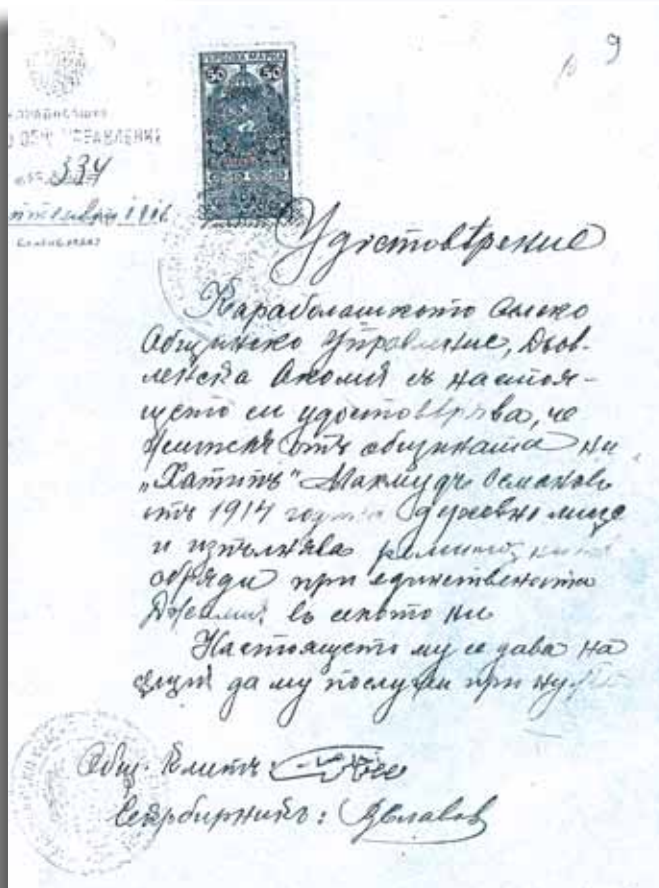 9
ГЕРБОВА МАРКА
50 50
334
1916
Удостовѣрение
Караболашкото Селско
Общинско Управление, Дьов-
ленска Околия съ настоя-
щето си удостовѣрява, че
жителя отъ общината ни
„Хатипъ" Махмудъ Османовъ
отъ 1914 година духовно лице
и изпълнява религиозните
обряди при единствената
Джамия въ селото ни
Настоящето му се дава на
същия да му послужи при нужда
Общ. Кметъ:
Секр бирникъ: